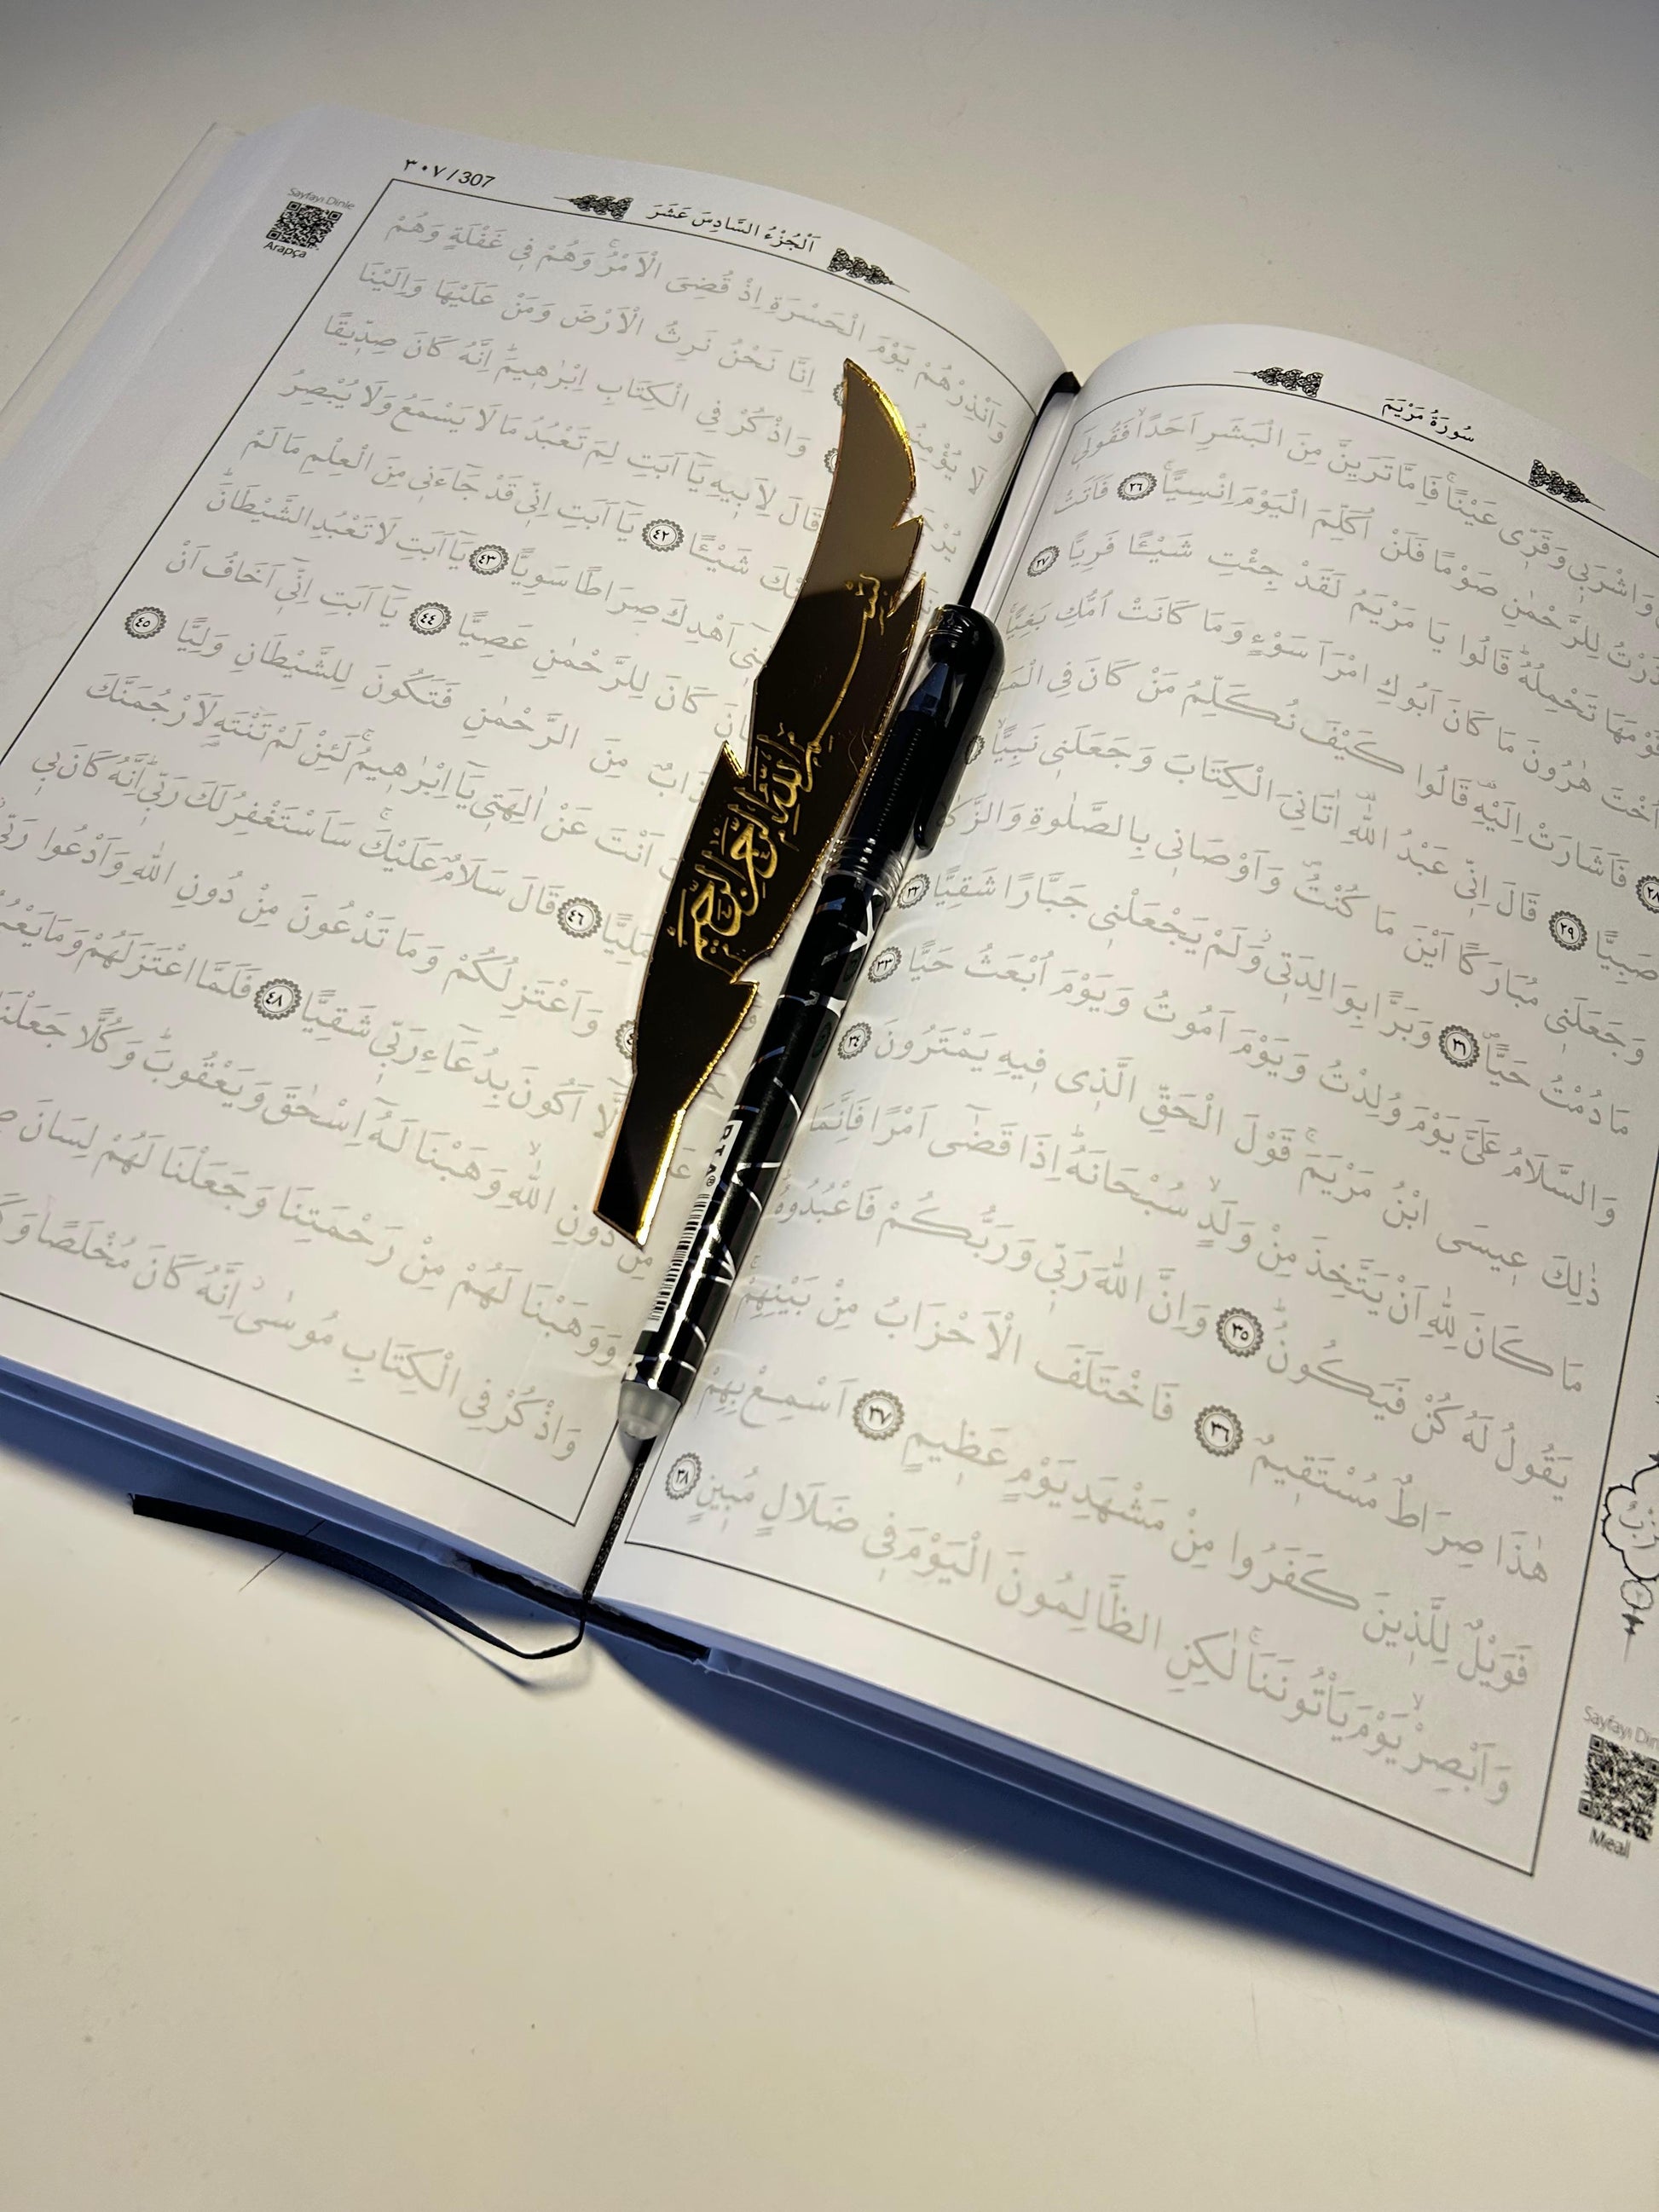 سُورَةُ مَرْيَمَ
وَاشْرَبِي وَقَرِّي عَيْنًاۚ فَاِمَّا تَرَيِنَّ مِنَ الْبَشَرِ اَحَدًاۙ فَقُولِي
لِلرَّحْمٰنِ صَوْمًا فَلَنْ اُكَلِّمَ الْيَوْمَ اِنْسِيًّاۚ ٢٦ فَاَتَتْ
قَوْمَهَا تَحْمِلُهُۜ قَالُوا يَا مَرْيَمُ لَقَدْ جِئْتِ شَيْـًٔا فَرِيًّا ٢٧
اُخْتَ هٰرُونَ مَا كَانَ اَبُوكِ امْرَاَ سَوْءٍ وَمَا كَانَتْ اُمُّكِ بَغِيًّاۚ
٢٨ فَاَشَارَتْ اِلَيْهِۜ قَالُوا كَيْفَ نُكَلِّمُ مَنْ كَانَ فِي
صَبِيًّا ٢٩ قَالَ اِنِّي عَبْدُ اللّٰهِۜ اٰتَانِيَ الْكِتَابَ وَجَعَلَنِي نَبِيًّاۙ
وَجَعَلَنِي مُبَارَكًا اَيْنَ مَا كُنْتُۖ وَاَوْصَانِي بِالصَّلٰوةِ
مَا دُمْتُ حَيًّاۖ ٣١ وَبَرًّا بِوَالِدَتِيۘ وَلَمْ يَجْعَلْنِي جَبَّارًا شَقِيًّا ٣٢
وَالسَّلَامُ عَلَيَّ يَوْمَ وُلِدْتُ وَيَوْمَ اَمُوتُ وَيَوْمَ اُبْعَثُ حَيًّا ٣٣
ذٰلِكَ عِيسَى ابْنُ مَرْيَمَۚ قَوْلَ الْحَقِّ الَّذِي فِيهِ يَمْتَرُونَ ٣٤
مَا كَانَ لِلّٰهِ اَنْ يَتَّخِذَ مِنْ وَلَدٍۙ سُبْحَانَهُۜ اِذَا قَضٰٓى اَمْرًا فَاِنَّمَا
يَقُولُ لَهُ كُنْ فَيَكُونُۜ ٣٥ وَاِنَّ اللّٰهَ رَبِّي وَرَبُّكُمْ فَاعْبُدُوهُۜ
هٰذَا صِرَاطٌ مُسْتَقِيمٌ ٣٦ فَاخْتَلَفَ الْاَحْزَابُ مِنْ بَيْنِهِمْۚ
فَوَيْلٌ لِلَّذِينَ كَفَرُوا مِنْ مَشْهَدِ يَوْمٍ عَظِيمٍ ٣٧ اَسْمِعْ بِهِمْ
وَاَبْصِرْۙ يَوْمَ يَأْتُونَنَا لٰكِنِ الظَّالِمُونَ الْيَوْمَ فِي ضَلَالٍ مُبِينٍ ٣٨
Meal
٣٠٧ / 307
اَلْجُزْءُ السَّادِسَ عَشَرَ
Sayfayı Dinle
Arapça
وَاَنْذِرْهُمْ يَوْمَ الْحَسْرَةِ اِذْ قُضِيَ الْاَمْرُۢ وَهُمْ فِي غَفْلَةٍ وَهُمْ
لَا اِنَّا نَحْنُ نَرِثُ الْاَرْضَ وَمَنْ عَلَيْهَا وَاِلَيْنَا
وَاذْكُرْ فِي الْكِتَابِ اِبْرٰهِيمَۜ اِنَّهُ كَانَ صِدِّيقًا
قَالَ لِاَبِيهِ يَٓا اَبَتِ لِمَ تَعْبُدُ مَا لَا يَسْمَعُ وَلَا يُبْصِرُ
شَيْـًٔا ٤٢ يَٓا اَبَتِ اِنِّي قَدْ جَٓاءَنِي مِنَ الْعِلْمِ مَا لَمْ
اَهْدِكَ صِرَاطًا سَوِيًّا ٤٣ يَٓا اَبَتِ لَا تَعْبُدِ الشَّيْطَانَۜ
كَانَ لِلرَّحْمٰنِ عَصِيًّا ٤٤ يَٓا اَبَتِ اِنِّٓي اَخَافُ اَنْ
مِنَ الرَّحْمٰنِ فَتَكُونَ لِلشَّيْطَانِ وَلِيًّا ٤٥
اَنْتَ عَنْ اٰلِهَتِي يَٓا اِبْرٰهِيمُۚ لَئِنْ لَمْ تَنْتَهِ لَاَرْجُمَنَّكَ
مَلِيًّا ٤٦ قَالَ سَلَامٌ عَلَيْكَۚ سَاَسْتَغْفِرُ لَكَ رَبِّيۜ اِنَّهُ كَانَ بِي
وَاَعْتَزِلُكُمْ وَمَا تَدْعُونَ مِنْ دُونِ اللّٰهِ وَاَدْعُوا
اَلَّٓا اَكُونَ بِدُعَٓاءِ رَبِّي شَقِيًّا ٤٨ فَلَمَّا اعْتَزَلَهُمْ وَمَا
مِنْ دُونِ اللّٰهِۙ وَهَبْنَا لَهُٓ اِسْحٰقَ وَيَعْقُوبَۜ وَكُلًّا جَعَلْنَا
وَوَهَبْنَا لَهُمْ مِنْ رَحْمَتِنَا وَجَعَلْنَا لَهُمْ لِسَانَ
وَاذْكُرْ فِي الْكِتَابِ مُوسٰىۘ اِنَّهُ كَانَ مُخْلَصًا
بسم الله الرحمن الرحيم